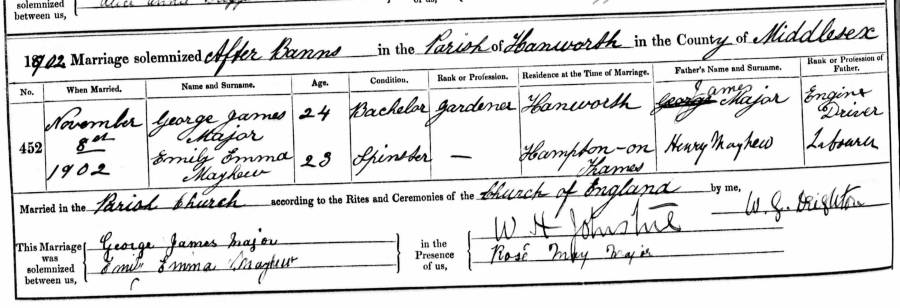 solemnized
between us,
of us,
1902 Marriage solemnized After Banns in the Parish of Hanworth in the County of Middlesex
No. When Married. Name and Surname. Age. Condition. Rank or Profession. Residence at the Time of Marriage. Father's Name and Surname. Rank or Profession of Father.
452 November 8th 1902
George James Major 24 Bachelor Gardener Hanworth George James Major Engine Driver
Emily Emma Mayhew 23 Spinster — Hampton-on Thames Henry Mayhew Labourer
Married in the Parish Church according to the Rites and Ceremonies of the Church of England by me, W. G.
This Marriage was solemnized between us, George James Major
Emily Emma Mayhew
in the Presence of us, W H
Rose May Major